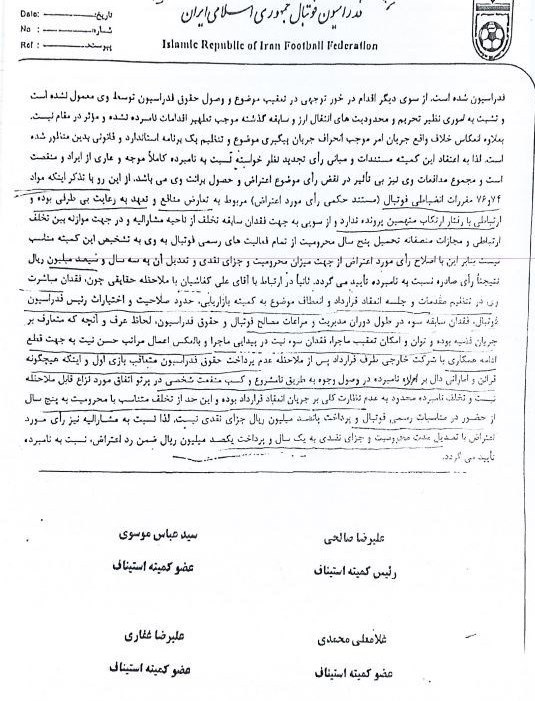 فدراسیون فوتبال جمهوری اسلامی ایران
Islamic Republic of Iran Football Federation
Date: تاریخ:
No : شماره:
Ref : پیوست:
فدراسیون شده است. از سوی دیگر اقدام در خور توجهی در تعقیب موضوع و وصول حقوق فدراسیون توسط وی معمول نشده است
و تشبث به اموری نظیر تحریم و محدودیت های انتقال ارز و سابقه گذشته موجب تطهیر اقدامات نامبرده نشده و مؤثر در مقام نیست.
بعلاوه انعکاس خلاف واقع جریان امر موجب انحراف جریان پیگیری موضوع و تنظیم یک برنامه استاندارد و قانونی بدین منظور شده
است. لذا به اعتقاد این کمیته مستندات و مبانی رأی تجدید نظر خواسته نسبت به نامبرده کاملاً موجه و عاری از ایراد و منقصت
است و مجموع مدافعات وی نیز بی تأثیر در نقض رأی موضوع اعتراض و حصول برائت وی می باشد. از این رو با تذکر اینکه مواد
۷۶،۷۴ مقررات انضباطی فوتبال (مستند حکمی رأی مورد اعتراض) مربوط به تعارض منافع و تعهد به رعایت بی طرفی بوده و
ارتباطی با رفتار ارتکاب متهمین پرونده ندارد و از سویی به جهت فقدان سابقه تخلف از ناحیه مشارالیه و در جهت موازنه بین تخلف
ارتباطی و مجازات منصفانه تحمیل پنج سال محرومیت از تمام فعالیت های رسمی فوتبال به وی به تشخیص این کمیته مناسب
نیست بنابر این با اصلاح رأی مورد اعتراض از جهت میزان محرومیت و جزای نقدی و تعدیل آن به سه سال و سیصد میلیون ریال
نتیجتاً رأی صادره نسبت به نامبرده تأیید می گردد. ثانیاً در ارتباط با آقای علی کفاشیان با ملاحظه حقایقی چون، فقدان مباشرت
وی در تنظیم مقدمات و جلسه انعقاد قرارداد و انعطاف موضوع به کمیته بازاریابی، حدود صلاحیت و اختیارات رئیس فدراسیون
فوتبال، فقدان سابقه سوء در طول دوران مدیریت و مراعات مصالح فوتبال و حقوق فدراسیون، لحاظ عرف و آنچه که متعارف بر
جریان قضیه بوده و توان و امکان تعقیب ماجرا، فقدان سوء نیت در پیدایی ماجرا و بالعکس اعمال مراتب حسن نیت به جهت قطع
ادامه همکاری با شرکت خارجی طرف قرارداد پس از ملاحظه عدم پرداخت حقوق فدراسیون متعاقب بازی اول و اینکه هیچگونه
قرائن و اماراتی دال بر اراده نامبرده در وصول وجوه به طریق نامشروع و کسب منفعت شخصی در پرتو اتفاق مورد نزاع قابل ملاحظه
نیست و تخلف نامبرده محدود به عدم نظارت کلی بر جریان انعقاد قرارداد بوده و این حد از تخلف متناسب با محرومیت به پنج سال
از حضور در مناسبات رسمی فوتبال و پرداخت پانصد میلیون ریال جزای نقدی نیست. لذا نسبت به مشارالیه نیز رأی مورد
اعتراض با تعدیل مدت محرومیت و جزای نقدی به یک سال و پرداخت یکصد میلیون ریال ضمن رد اعتراض، نسبت به نامبرده
تأیید می گردد.
علیرضا صالحی
رئیس کمیته استیناف
سید عباس موسوی
عضو کمیته استیناف
غلامعلی محمدی
عضو کمیته استیناف
علیرضا غفاری
عضو کمیته استیناف